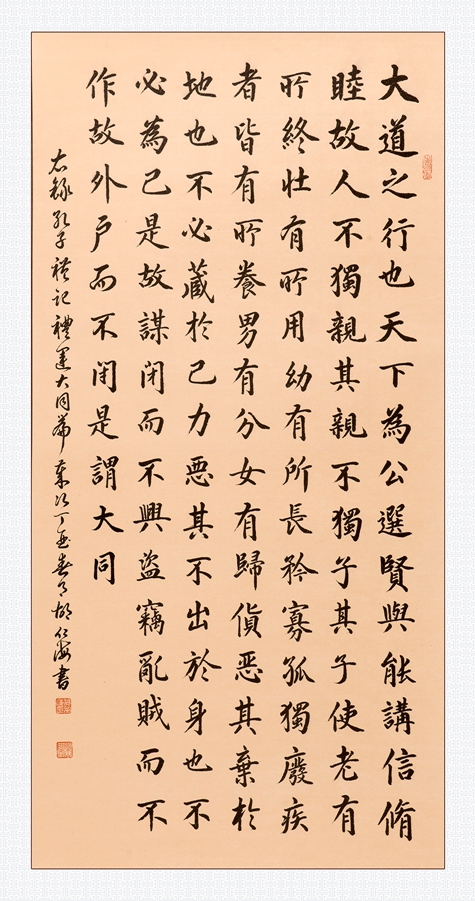 大道之行也天下為公選賢與能講信脩
睦故人不獨親其親不獨子其子使老有
所終壯有所用幼有所長矜寡孤獨廢疾
者皆有所養男有分女有歸貨惡其棄於
地也不必藏於己力惡其不出於身也不
必為己是故謀閉而不興盜竊亂賊而不
作故外戶而不閉是謂大同
右錄孔子禮記禮運大同篇歲次丁亥春月胡仁海書